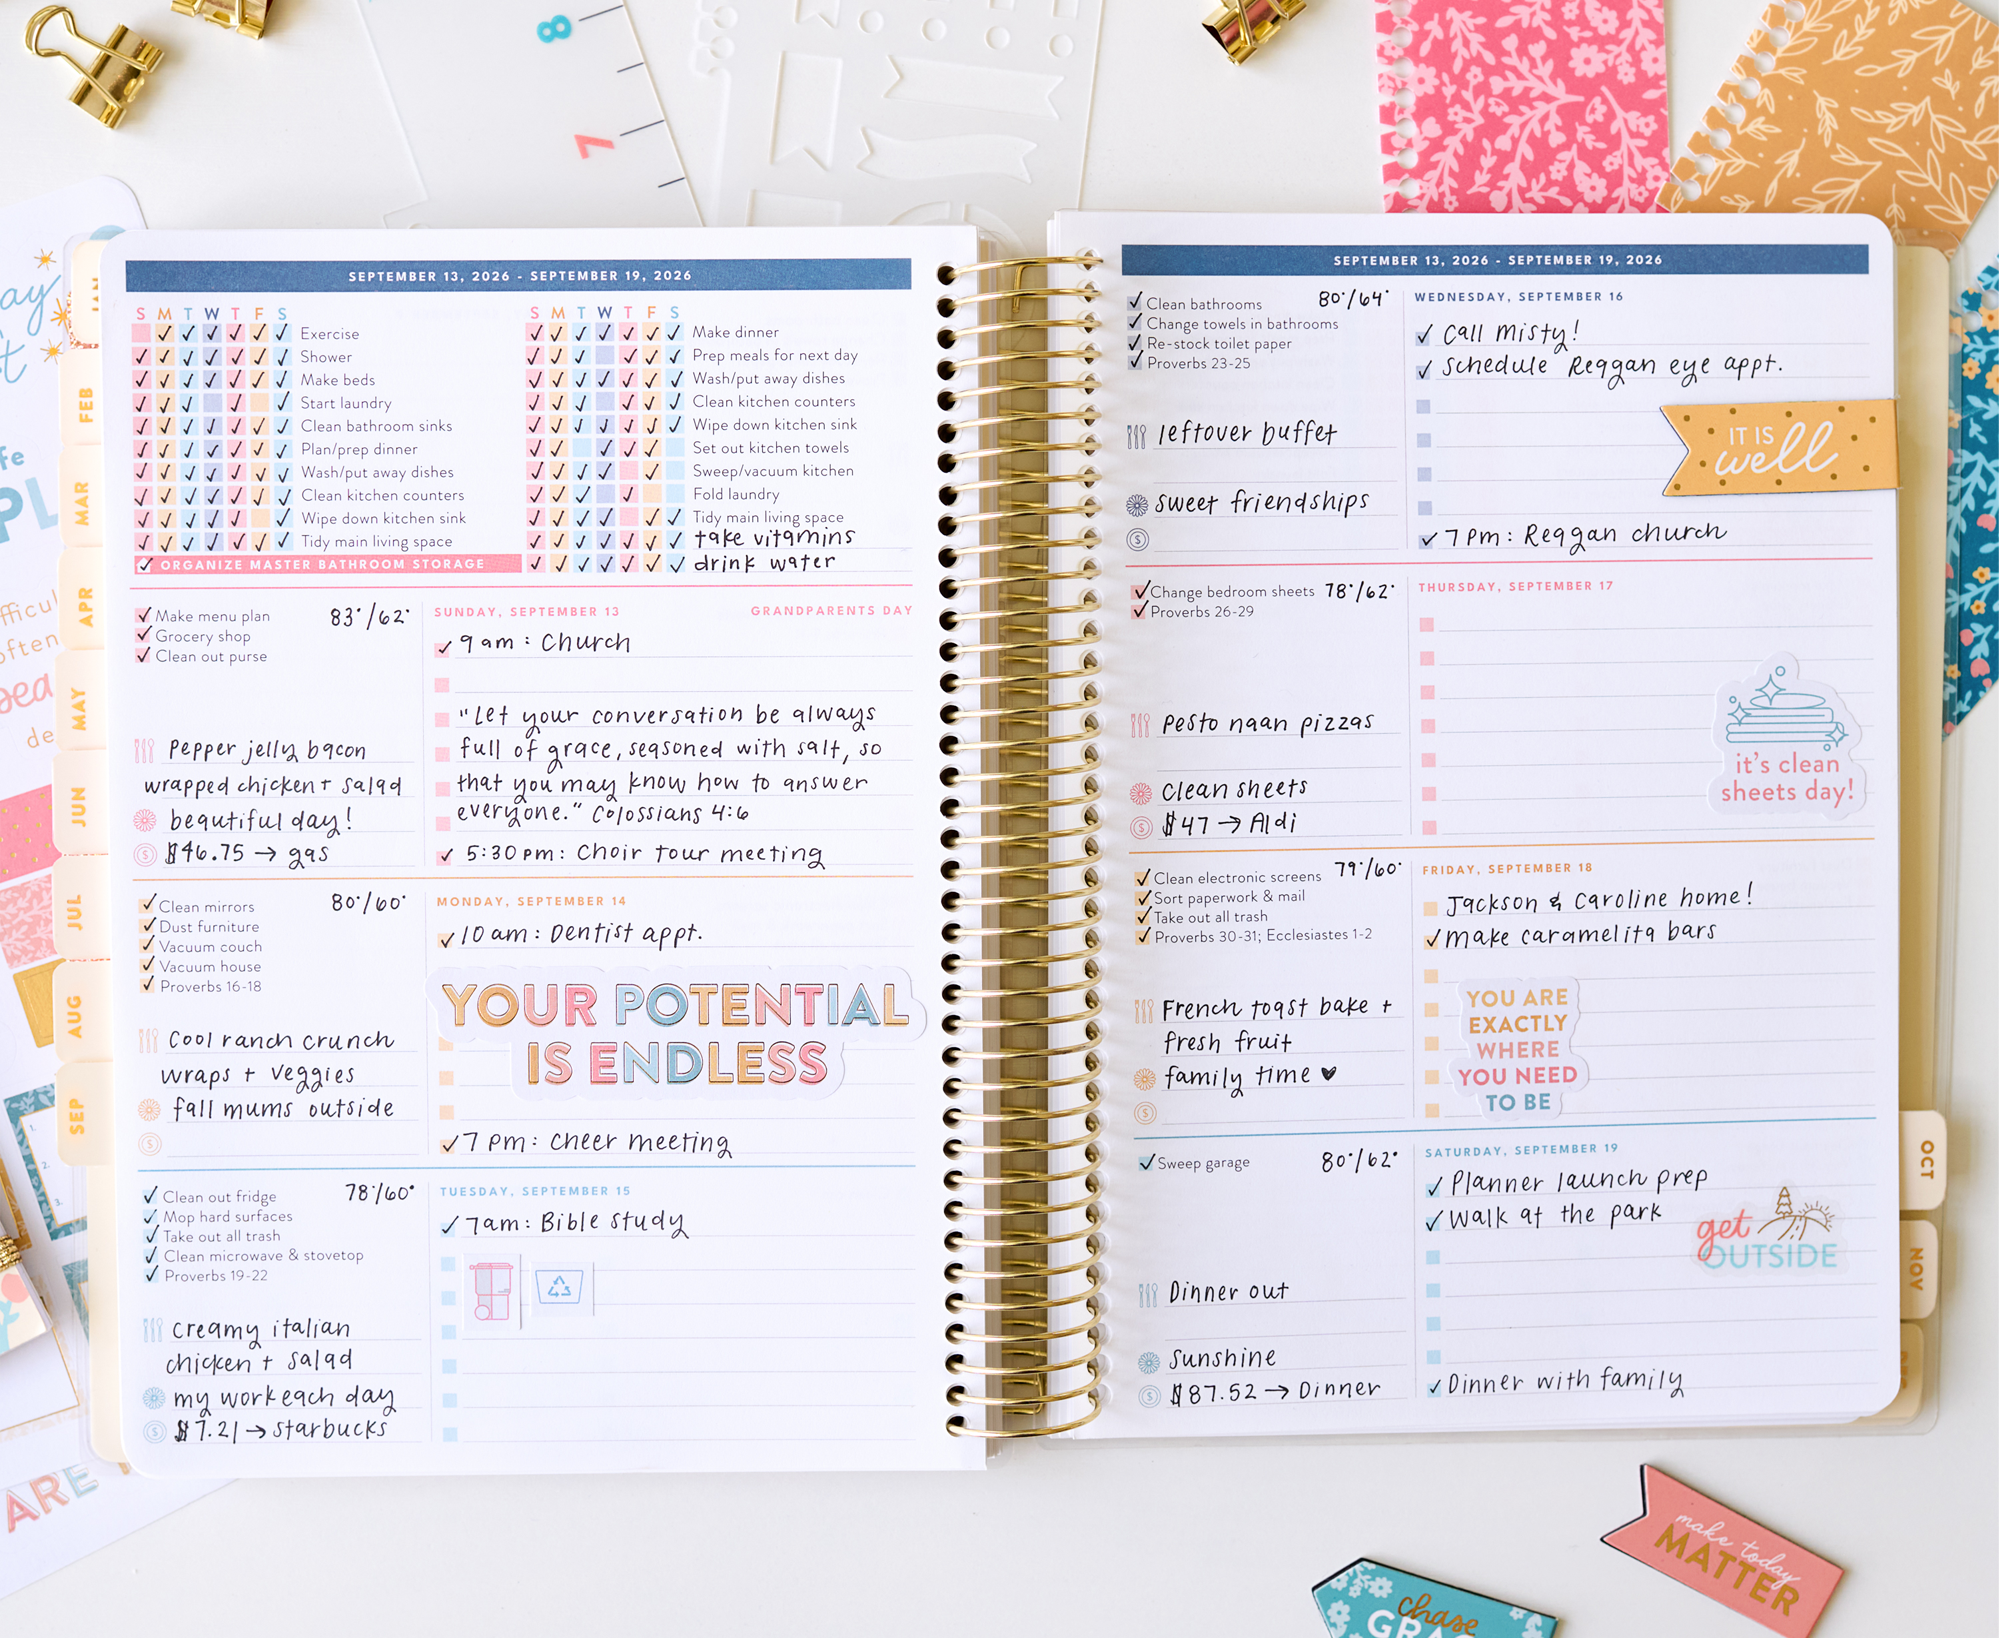 8
7
SEPTEMBER 13, 2026 - SEPTEMBER 19, 2026
S M T W T F S
Exercise
Shower
Make beds
Start laundry
Clean bathroom sinks
Plan/prep dinner
Wash/put away dishes
Clean kitchen counters
Wipe down kitchen sink
Tidy main living space
ORGANIZE MASTER BATHROOM STORAGE
S M T W T F S
Make dinner
Prep meals for next day
Wash/put away dishes
Clean kitchen counters
Wipe down kitchen sink
Set out kitchen towels
Sweep/vacuum kitchen
Fold laundry
Tidy main living space
take vitamins
drink water
Make menu plan
Grocery shop
Clean out purse
83°/62°
Pepper jelly bacon
wrapped chicken + salad
beautiful day!
$46.75 → gas
SUNDAY, SEPTEMBER 13
GRANDPARENTS DAY
9am: Church
"Let your conversation be always
full of grace, seasoned with salt, so
that you may know how to answer
everyone." Colossians 4:6
5:30pm: Choir tour meeting
Clean mirrors
Dust furniture
Vacuum couch
Vacuum house
Proverbs 16-18
80°/60°
Cool ranch crunch
wraps + veggies
fall mums outside
MONDAY, SEPTEMBER 14
10am: Dentist appt.
YOUR POTENTIAL
IS ENDLESS
7pm: Cheer meeting
Clean out fridge
Mop hard surfaces
Take out all trash
Clean microwave & stovetop
Proverbs 19-22
78°/60°
creamy italian
chicken + salad
my workeach day
$7.21 → starbucks
TUESDAY, SEPTEMBER 15
7am: Bible study
SEPTEMBER 13, 2026 - SEPTEMBER 19, 2026
Clean bathrooms
Change towels in bathrooms
Re-stock toilet paper
Proverbs 23-25
80°/64°
leftover buffet
sweet friendships
WEDNESDAY, SEPTEMBER 16
Call Misty!
Schedule Reagan eye appt.
IT IS
well
7pm: Reagan church
Change bedroom sheets
Proverbs 26-29
78°/62°
pesto naan pizzas
clean sheets
$47 → Aldi
THURSDAY, SEPTEMBER 17
it's clean
sheets day!
Clean electronic screens
Sort paperwork & mail
Take out all trash
Proverbs 30-31; Ecclesiastes 1-2
79°/60°
French toast bake +
fresh fruit
family time ♥
FRIDAY, SEPTEMBER 18
Jackson & Caroline home!
make caramelita bars
YOU ARE
EXACTLY
WHERE
YOU NEED
TO BE
Sweep garage
80°/62°
Dinner out
Sunshine
$87.52 → Dinner
SATURDAY, SEPTEMBER 19
Planner launch prep
Walk at the park
get
OUTSIDE
Dinner with family
FEB
MAR
APR
MAY
JUN
JUL
AUG
SEP
OCT
NOV
ARE
make today
MATTER
chase